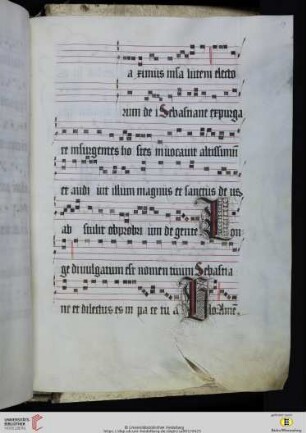 a ximus in sa lutem electo
rum de i Sebastiane expurga
re insurgentes ho stes invocavit altissimū
et audi vit illum magnus et sanctus de us
ab stulit obprobri um de gente Lon
ge divulgatum est nomen tuum Sebastia
ne et dilectus es in pa ce tu a
UNIVERSITÄTS-
BIBLIOTHEK
HEIDELBERG
© Universitätsbibliothek Heidelberg